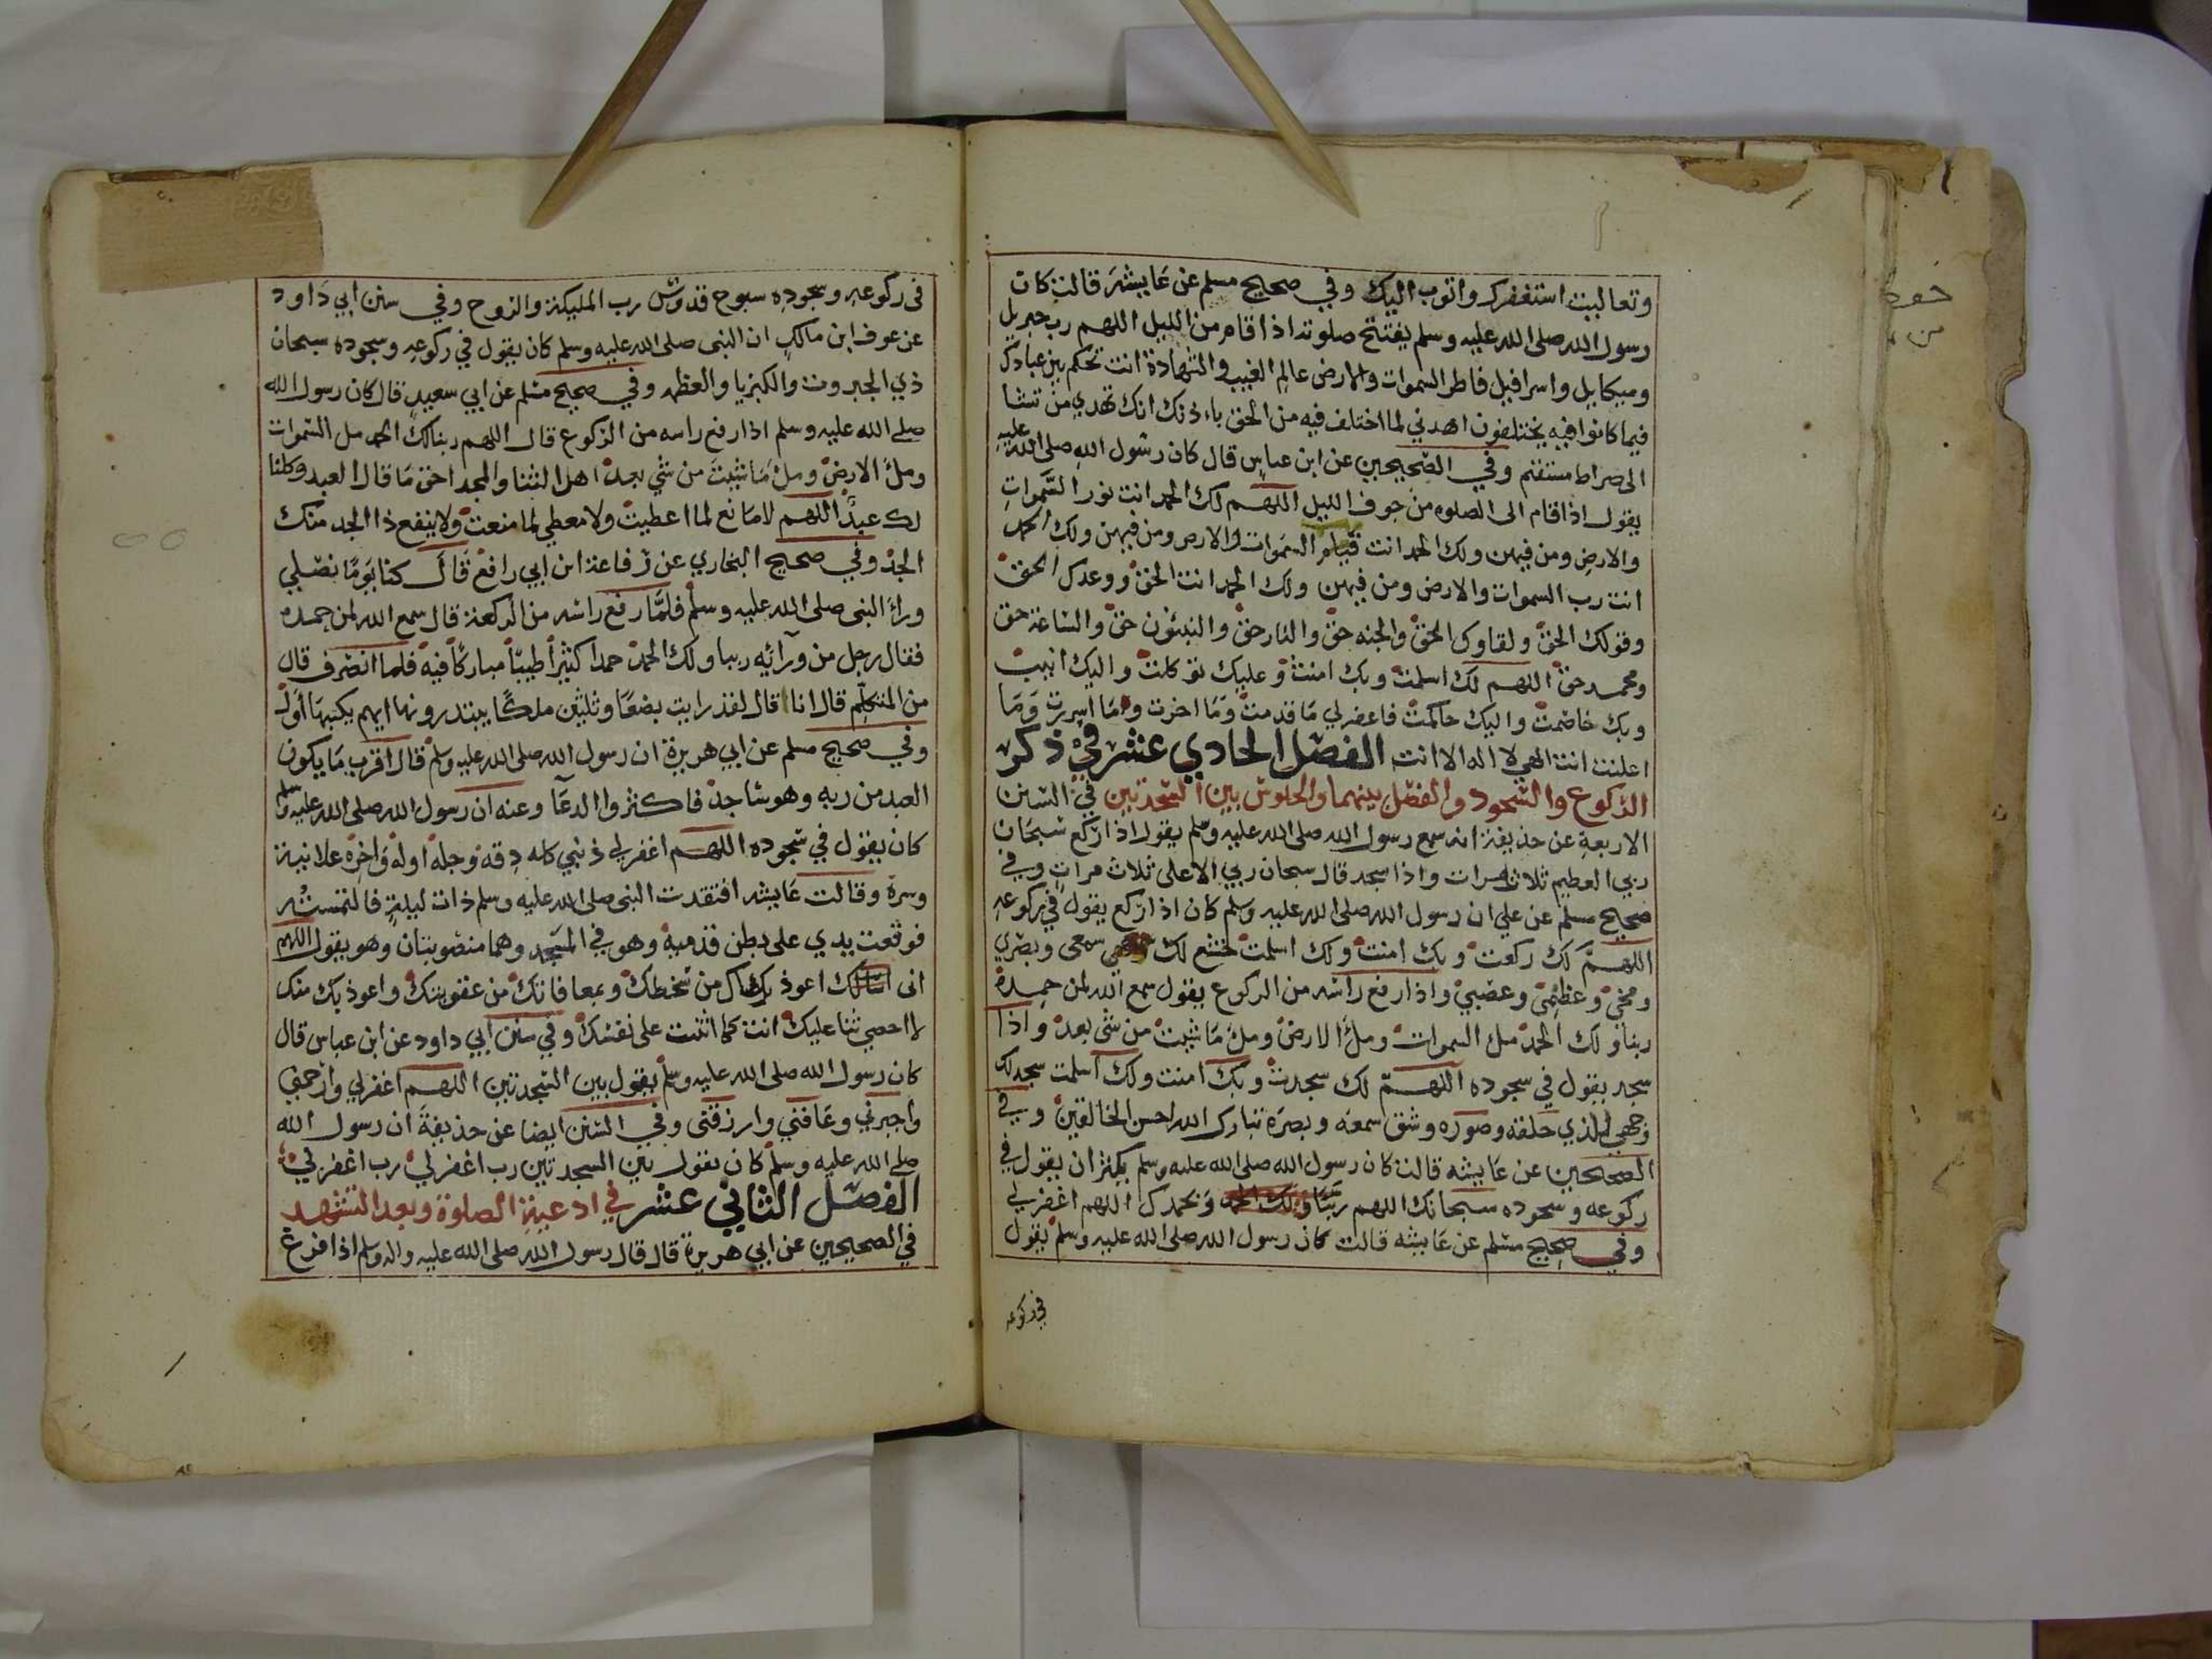 وتعاليت استغفرك واتوب اليك وفي صحيح مسلم عن عايشة قالت كان
رسول الله صلى الله عليه وسلم يفتتح صلوته اذا قام من الليل اللهم رب جبريل
وميكايل واسرافيل فاطر السموات والارض عالم الغيب والشهادة انت تحكم بين عبادك
فيما كانوا فيه يختلفون اهدني لما اختلف فيه من الحق باءذنك انك تهدي من تشا
الى صراط مستقيم وفي الصحيحين عن ابن عباس قال كان رسول الله صلى الله عليه
يقول اذا قام الى الصلوه من جوف الليل اللهم لك الحمد انت نور السموات
والارض ومن فيهن ولك الحمد انت قيام السموات والارض ومن فيهن ولك الحمد
انت رب السموات والارض ومن فيهن ولك الحمد انت الحق ووعدك الحق
وقولك الحق ولقاوك الحق والجنه حق والنار حق والنبئون حق والساعة حق
ومحمد حق اللهم لك اسلمت وبك امنت وعليك توكلت واليك انيبت
وبك خاصمت واليك حاكمت فاغفر لي ما قدمت وما اخرت وما اسررت وما
اعلنت انت الهي لا اله الا انت الفصل الحادي عشر في ذكر
الركوع والسجود والفصل بينهما والجلوس بين السجدتين في السنن
الاربعة عن حذيفة انه سمع رسول الله صلى الله عليه وسلم يقول اذا ركع سبحان
ربي العظيم ثلاث مرات واذا سجد قال سبحان ربي الاعلى ثلاث مرات وفي
صحيح مسلم عن علي ان رسول الله صلى الله عليه وسلم كان اذا ركع يقول في ركوعه
اللهم لك ركعت وبك امنت ولك اسلمت خشع لك سمعي وبصري
ومخي وعظمي وعصبي واذا رفع راسه من الركوع يقول سمع الله لمن حمده
ربنا ولك الحمد مل السموات ومل الارض ومل ما شيت من شي بعد واذا
سجد يقول في سجوده اللهم لك سجدت وبك امنت ولك اسلمت سجد لك
وجهي للذي خلقه وصوره وشق سمعه وبصره تبارك الله احسن الخالقين وفي
الصحيحين عن عايشه قالت كان رسول الله صلى الله عليه وسلم يكثر ان يقول في
ركوعه وسجوده سبحانك اللهم ربنا ولك الحمد وبحمدك اللهم اغفر لي
وفي صحيح مسلم عن عايشه قالت كان رسول الله صلى الله عليه وسلم يقول
في ركوعه
في ركوعه وسجوده سبوح قدوس رب المليكة والروح وفي سنن ابي داود
عن عوف ابن مالك ان النبي صلى الله عليه وسلم كان يقول في ركوعه وسجوده سبحان
ذي الجبروت والكبريا والعظمه وفي صحيح مسلم عن ابي سعيد قال كان رسول الله
صلى الله عليه وسلم اذا رفع راسه من الركوع قال اللهم ربنا لك الحمد مل السموات
ومل الارض ومل ما شيت من شي بعد اهل الثنا والمجد احق ما قال العبد وكلنا
لك عبد اللهم لا مانع لما اعطيت ولا معطي لما منعت ولا ينفع ذا الجد منك
الجد وفي صحيح البخاري عن رفاعة ابن ابي رافع قال كنا يوما نصلي
وراء النبي صلى الله عليه وسلم فلما رفع راسه من الركعة قال سمع الله لمن حمده
فقال رجل من ورآئه ربنا ولك الحمد حمدا كثيراً طيباً مباركاً فيه فلما انصرف قال
من المتكلم قال انا قال لقد رايت بضعا وثلثين ملكا يبتدرونها ايهم يكتبها اول
وفي صحيح مسلم عن ابي هريرة ان رسول الله صلى الله عليه وسلم قال اقرب ما يكون
العبد من ربه وهو ساجد فاكثروا الدعآ وعنه ان رسول الله صلى الله عليه وسلم
كان يقول في سجوده اللهم اغفر لي ذنبي كله دقه وجله اوله واخره علانية
وسره وقالت عايشه افتقدت النبي صلى الله عليه وسلم ذات ليلة فالتمسته
فوقعت يدي على بطن قدميه وهو في المسجد وهما منصوبتان وهو يقول اللهم
اني اسالك اعوذ برضاك من سخطك وبمعافاتك من عقوبتك واعوذ بك منك
لا احصي ثنا عليك انت كما اثنيت على نفسك وفي سنن ابي داود عن ابن عباس قال
كان رسول الله صلى الله عليه وسلم يقول بين السجدتين اللهم اغفر لي وارحمني
واجبرني وعافني وارزقني وفي السنن ايضا عن حذيفة ان رسول الله
صلى الله عليه وسلم كان يقول بين السجدتين رب اغفر لي رب اغفر لي
الفصل الثاني عشر في ادعية الصلوة وبعد التشهد
في الصحيحين عن ابي هريرة قال قال رسول الله صلى الله عليه واله وسلم اذا فرغ